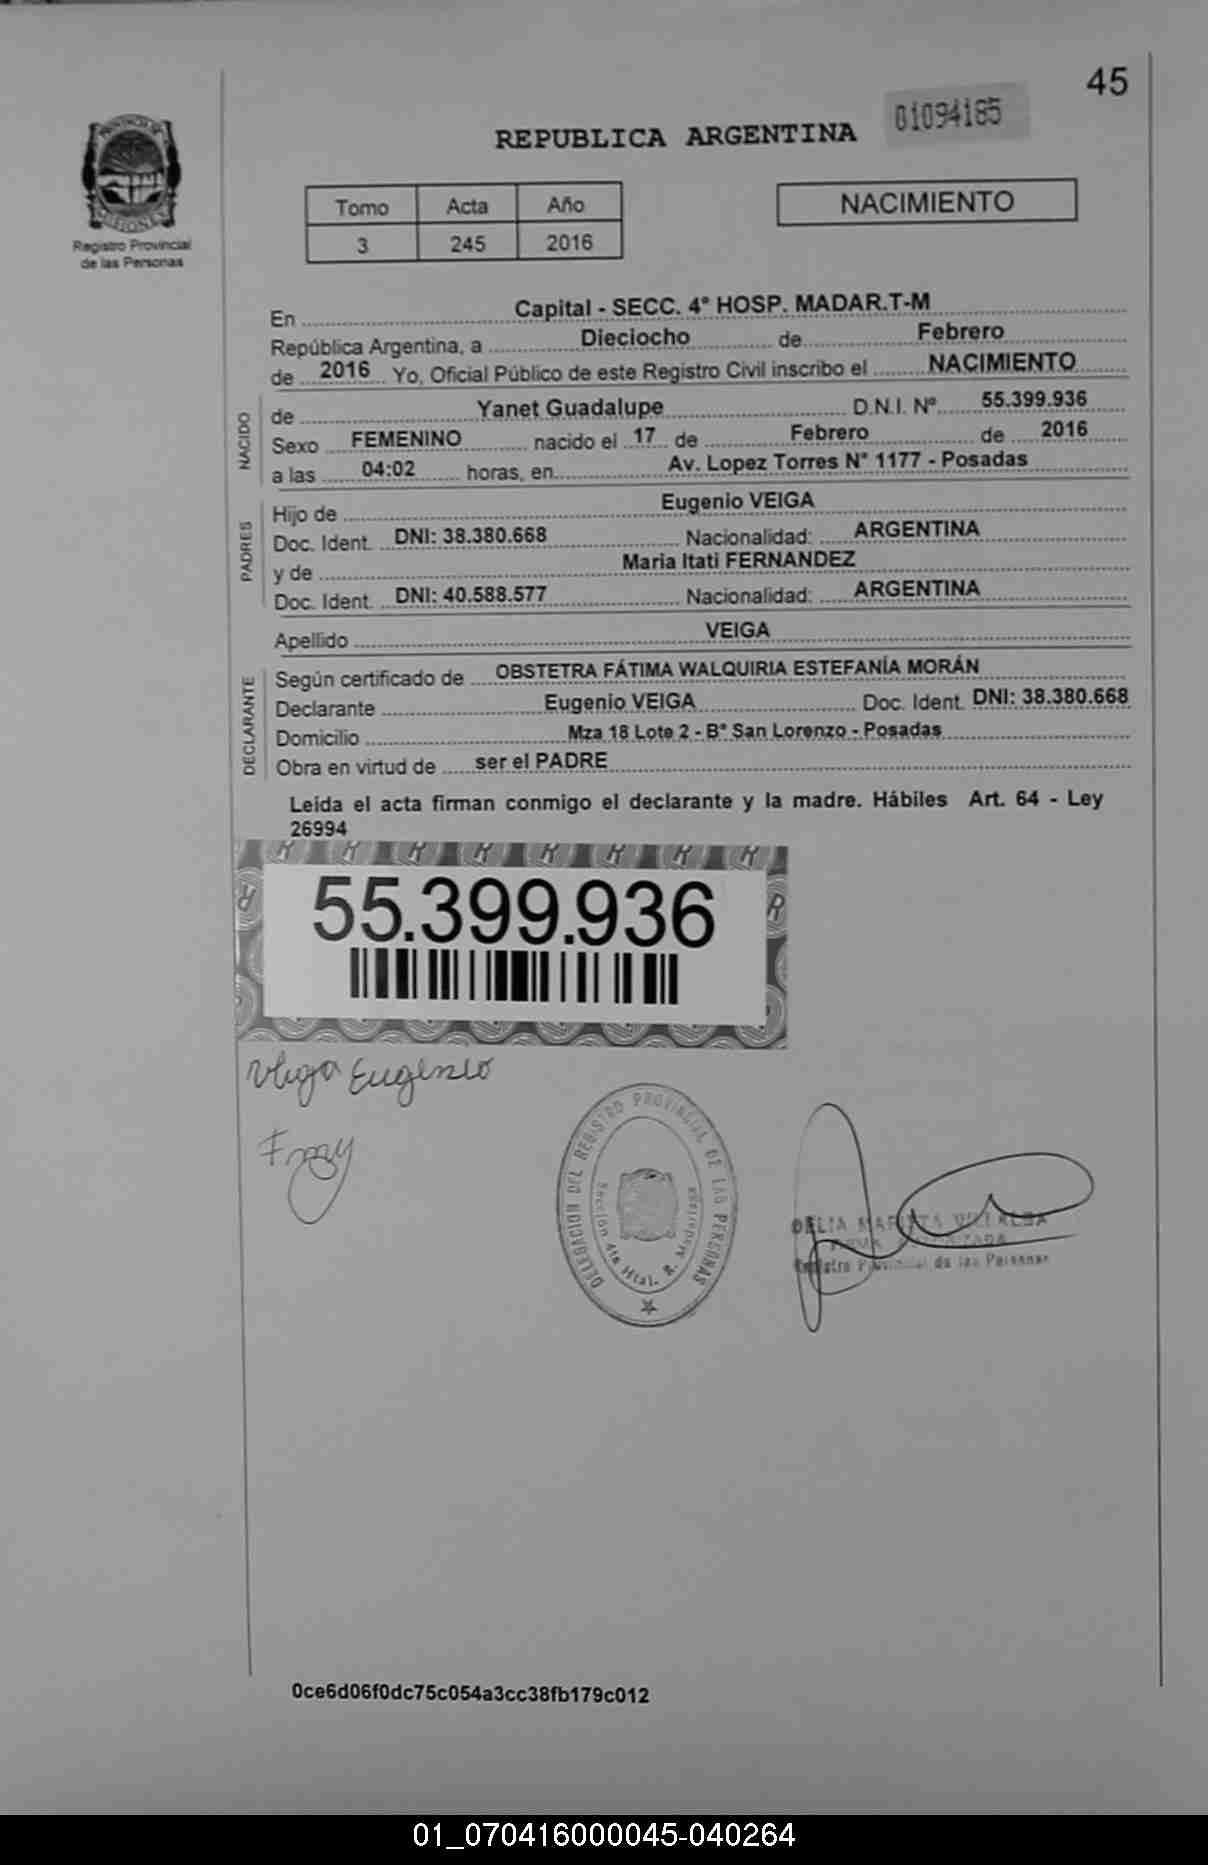 45
01094185
REPUBLICA ARGENTINA
PROVINCIA DE MISIONES
Registro Provincial
de las Personas
Tomo Acta Año
3 245 2016
NACIMIENTO
En Capital - SECC. 4° HOSP. MADAR.T-M
República Argentina, a Dieciocho de Febrero
de 2016 Yo, Oficial Público de este Registro Civil inscribo el NACIMIENTO
NACIDO
de Yanet Guadalupe D.N.I. Nº 55.399.936
Sexo FEMENINO nacido el 17 de Febrero de 2016
a las 04:02 horas, en Av. Lopez Torres N° 1177 - Posadas
PADRES
Hijo de Eugenio VEIGA
Doc. Ident. DNI: 38.380.668 Nacionalidad: ARGENTINA
y de Maria Itati FERNANDEZ
Doc. Ident. DNI: 40.588.577 Nacionalidad: ARGENTINA
Apellido VEIGA
DECLARANTE
Según certificado de OBSTETRA FÁTIMA WALQUIRIA ESTEFANÍA MORÁN
Declarante Eugenio VEIGA Doc. Ident. DNI: 38.380.668
Domicilio Mza 18 Lote 2 - B° San Lorenzo - Posadas
Obra en virtud de ser el PADRE
Leida el acta firman conmigo el declarante y la madre. Hábiles Art. 64 - Ley
26994
55.399.936
Veiga Eugenio
DELEGACION DEL REGISTRO PROVINCIAL DE LAS PERSONAS
Sección 4ta Htal. R. Madariaga
DELIA MARISTA VILLALBA
FIRMA AUTORIZADA
Registro Provincial de las Personas
0ce6d06f0dc75c054a3cc38fb179c012
01_070416000045-040264